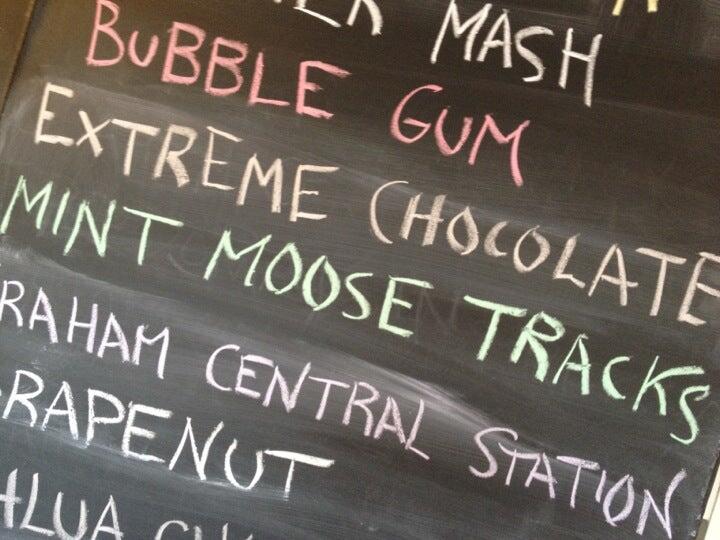 MASH
BUBBLE GUM
EXTREME CHOCOLATE
MINT MOOSE TRACKS
RAHAM CENTRAL STATION
RAPENUT
HLUA